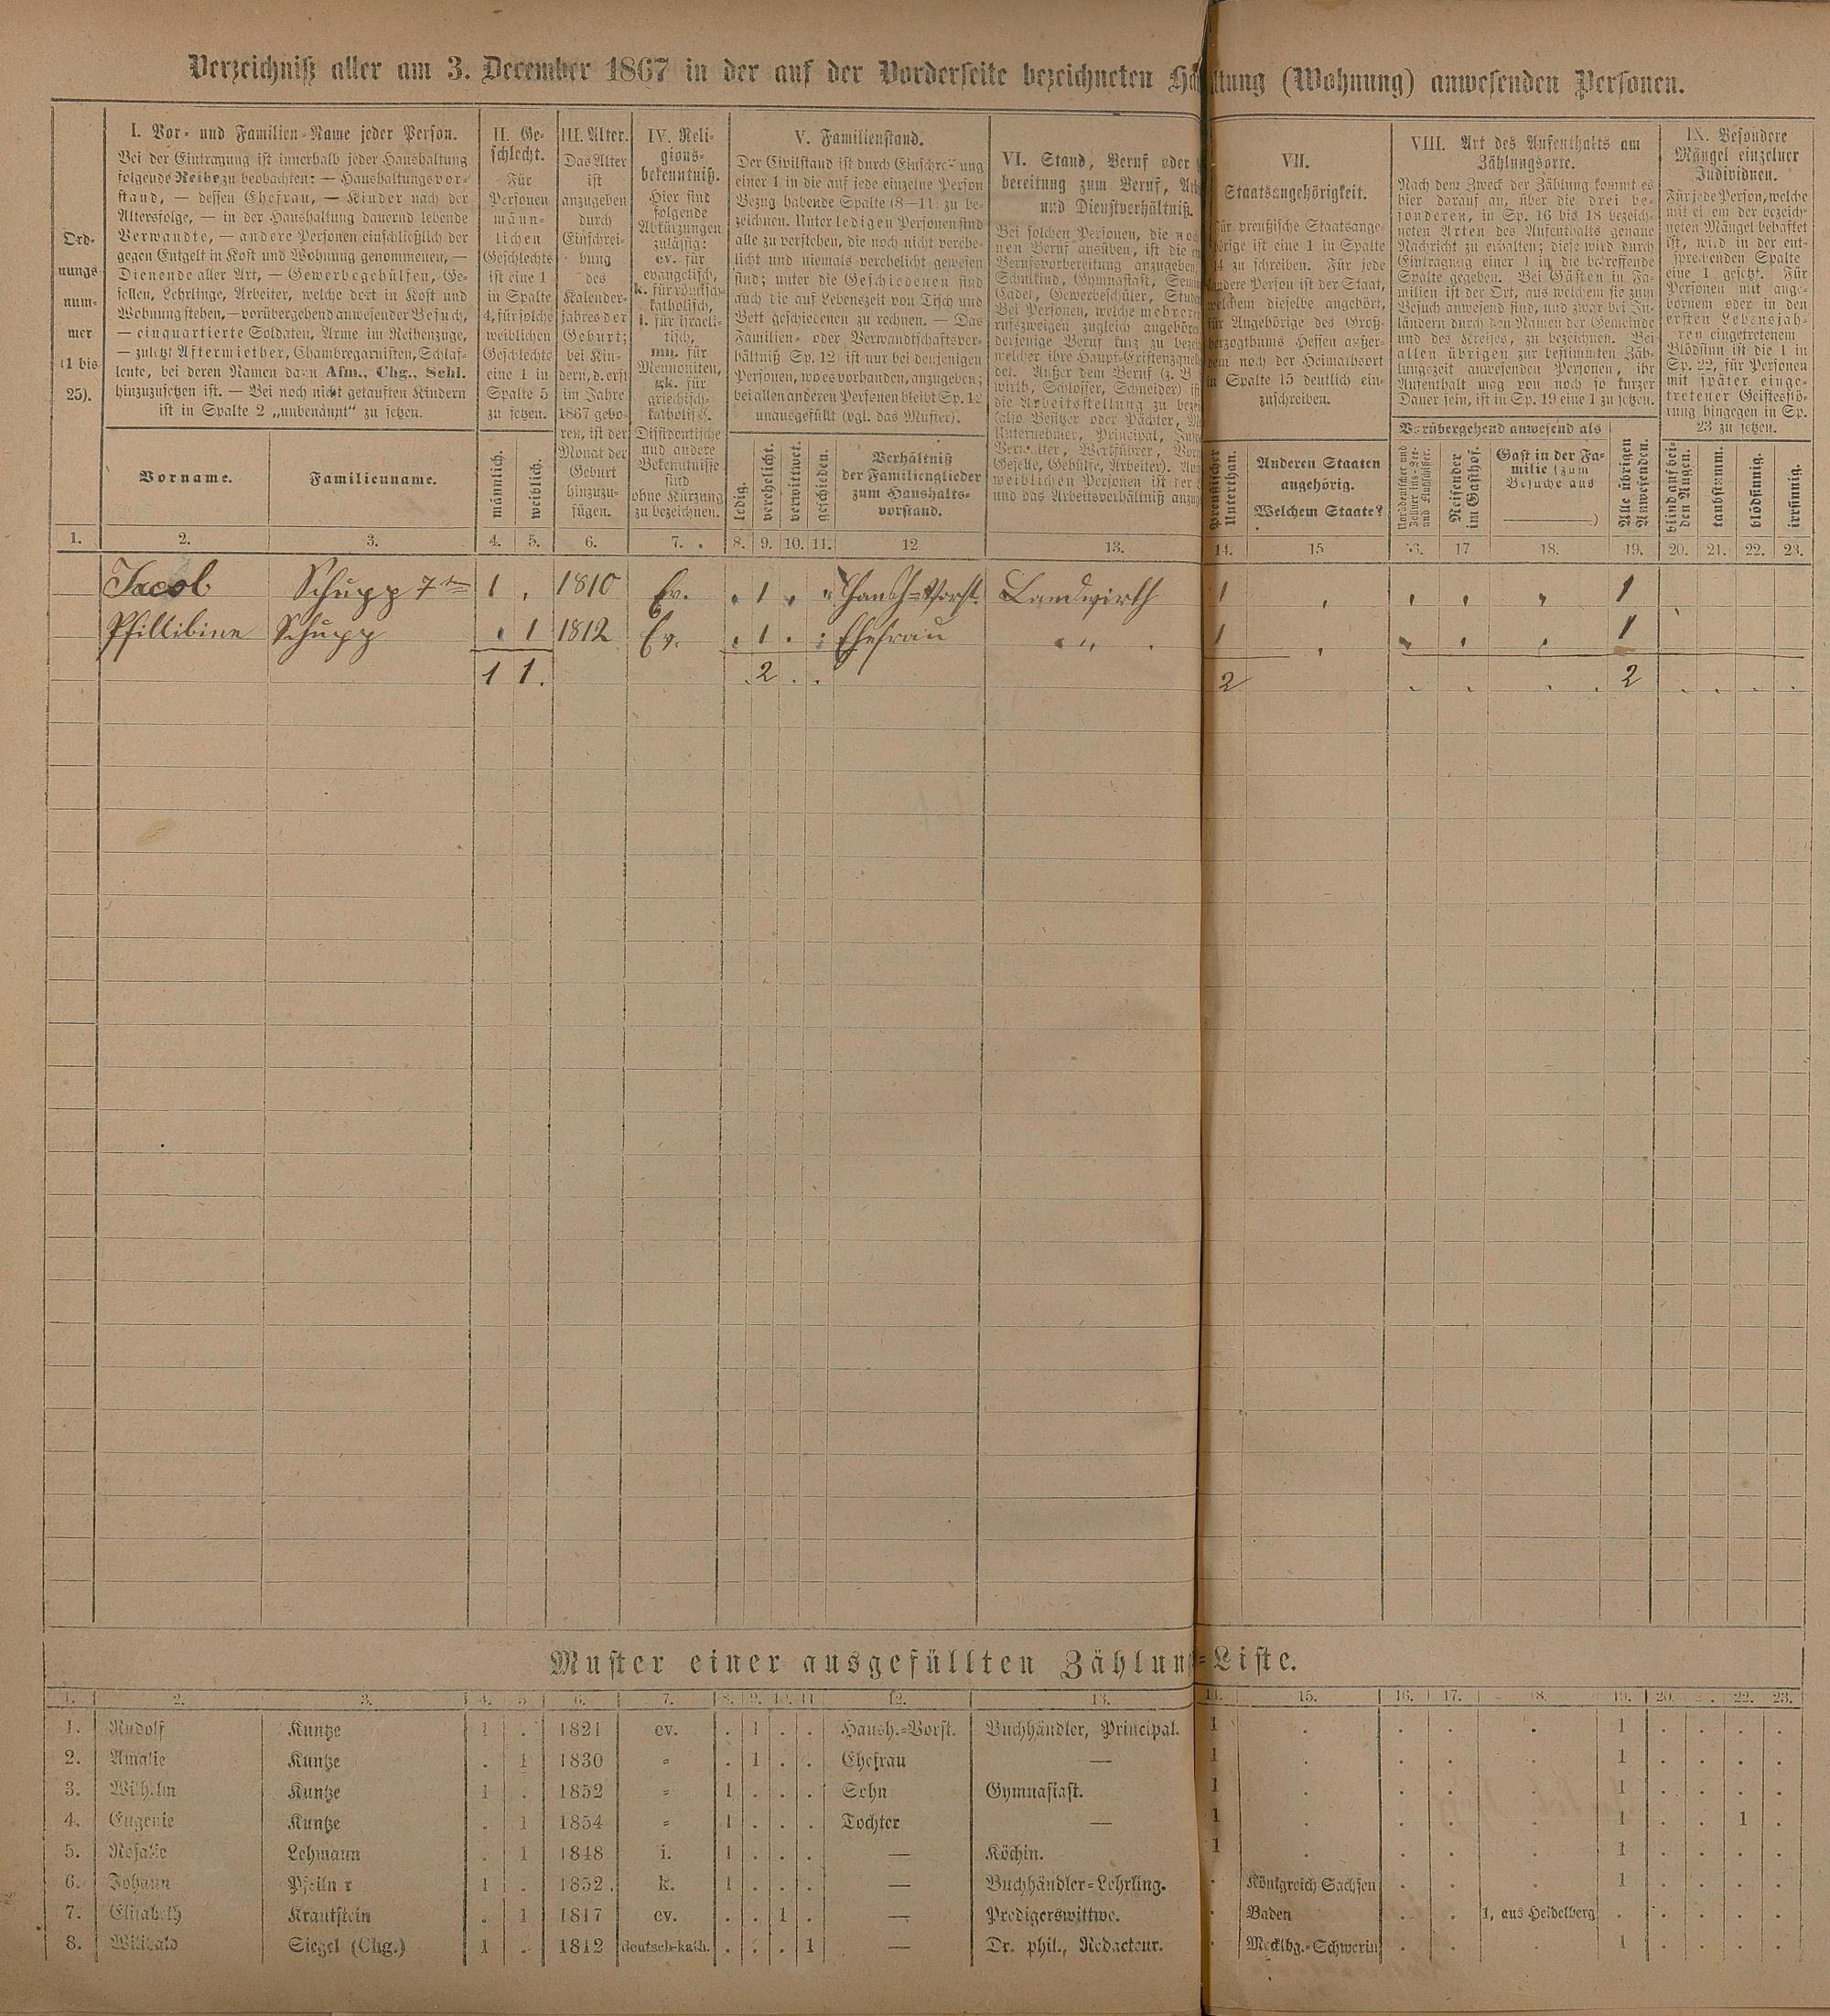 Verzeichniß aller am 3. December 1867 in der auf der Vorderseite bezeichneten Ha ltung (Wohnung) anwesenden Personen.
Ord-
nungs
num-
mer
(1 bis
25).
I. Vor- und Familien-Name jeder Person.
Bei der Eintragung ist innerhalb jeder Haushaltung
folgende Reihe zu beobachten: — Haushaltungsvor-
stand, — dessen Ehefrau, — Kinder nach der
Altersfolge, — in der Haushaltung dauernd lebende
Verwandte, — andere Personen einschließlich der
gegen Entgelt in Kost und Wohnung genommenen, —
Dienende aller Art, — Gewerbegehülfen, Ge-
sellen, Lehrlinge, Arbeiter, welche dort in Kost und
Wohnung stehen, — vorübergehend anwesender Besuch,
— einquartierte Soldaten, Arme im Reihenzuge,
— zuletzt Aftermiether, Chambregarnisten, Schlaf-
leute, bei deren Namen dann Afm., Chg., Schl.
hinzuzusetzen ist. — Bei noch nicht getauften Kindern
ist in Spalte 2 „unbenannt“ zu setzen.
Vorname.
Familienname.
II. Ge-
schlecht.
Für
Personen
männ-
lichen
Geschlechts
ist eine 1
in Spalte
4, für solche
weiblichen
Geschlechts
eine 1 in
Spalte 5
zu setzen.
männlich.
weiblich.
III. Alter.
Das Alter
ist
anzugeben
durch
Einschrei-
bung
des
Kalender-
jahres der
Geburt;
bei Kin-
dern, d. erst
im Jahre
1867 gebo-
ren, ist der
Monat der
Geburt
hinzuzu-
fügen.
IV. Reli-
gions-
bekenntniß.
Hier sind
folgende
Abkürzungen
zulässig:
ev. für
evangelisch,
k. für römisch-
katholisch,
i. für israeli-
tisch,
mn. für
Mennoniten,
gk. für
griechisch-
katholisch.
Dissidentische
und andere
Bekenntnisse
sind
ohne Kürzung
zu bezeichnen.
V. Familienstand.
Der Civilstand ist durch Einschreibung
einer 1 in die auf jede einzelne Person
Bezug habende Spalte (8—11) zu be-
zeichnen. Unter ledigen Personen sind
alle zu verstehen, die noch nicht verehe-
licht und niemals verehelicht gewesen
sind; unter die Geschiedenen sind
auch die auf Lebenszeit von Tisch und
Bett geschiedenen zu rechnen. — Das
Familien- oder Verwandtschaftsver-
hältniß Sp. 12 ist nur bei denjenigen
Personen, wo es vorhanden, anzugeben;
bei allen anderen Personen bleibt Sp. 12
unausgefüllt (vgl. das Muster).
ledig.
verehelicht.
verwittwet.
geschieden.
Verhältniß
der Familienglieder
zum Haushalts-
vorstand.
VI. Stand, Beruf oder
bereitung zum Beruf, Arb
und Dienstverhältniß.
Bei solchen Personen, die noch
nen Beruf ausüben, ist die
Berufsvorbereitung anzugeben,
Schulkind, Gymnasiast, Semin
Cadet, Gewerbeschüler, Stude
Bei Personen, welche mehreren
rufszweigen zugleich angehören
derjenige Beruf kurz zu bezei
welcher ihre Haupt-Existenzquelle
det. Außer dem Beruf (z. B.
wirth, Schlosser, Schneider) ist
die Arbeitsstellung zu bezei
(also Besitzer oder Pächter, M
Unternehmer, Principal,
Verwalter, Werkführer, Vor
Geselle, Gehülfe, Arbeiter).
weiblichen Personen ist der
und das Arbeitsverhältniß anzug
VII.
Staatsangehörigkeit.
Für preußische Staatsange-
hörige ist eine 1 in Spalte
14 zu schreiben. Für jede
andere Person ist der Staat,
welchem dieselbe angehört,
für Angehörige des Groß-
herzogthums Hessen außer-
dem noch der Heimathsort
in Spalte 15 deutlich ein-
zuschreiben.
Preußischer
Unterthan.
Anderen Staaten
angehörig.
Welchem Staate?
VIII. Art des Aufenthalts am
Zählungsorte.
Nach dem Zweck der Zählung kommt es
hier darauf an, über die drei be-
sonderen, in Sp. 16 bis 18 bezeich-
neten Arten des Aufenthalts genaue
Nachricht zu erhalten; diese wird durch
Eintragung einer 1 in die betreffende
Spalte gegeben. Bei Gästen in Fa-
milien ist der Ort, aus welchem sie zum
Besuch anwesend sind, und zwar bei In-
ländern durch den Namen der Gemeinde
und des Kreises, zu bezeichnen. Bei
allen übrigen zur bestimmten Zäh-
lungszeit anwesenden Personen, ihr
Aufenthalt mag von noch so kurzer
Dauer sein, ist in Sp. 19 eine 1 zu setzen.
Vorübergehend anwesend als
Reisender
im Gasthof.
Gast in der Fa-
milie (zum
Besuche aus
)
Alle übrigen
Anwesenden.
IX. Besondere
Mängel einzelner
Individuen.
Für jede Person, welche
mit einem der bezeich-
neten Mängel behaftet
ist, wird in der ent-
sprechenden Spalte
eine 1 gesetzt. Für
Personen mit ange-
bornem oder in den
ersten Lebensjah-
ren eingetretenem
Blödsinn ist die 1 in
Sp. 22, für Personen
mit später einge-
tretener Geistesstö-
rung hingegen in Sp.
23 zu setzen.
blind auf bei-
den Augen.
taubstumm.
blödsinnig.
irrsinnig.
1. 2. 3. 4. 5. 6. 7. 8. 9. 10. 11. 12. 13. 14. 15. 16. 17. 18. 19. 20. 21. 22. 23.
Jacob Schupp 7te 1 . 1810 Ev. . 1 . . Haush=Vorst. Landwirth 1 . . . . 1
Phillibine Schupp . 1 1812 Ev. . 1 . . Ehefrau „ 1 . . . . 1
1 1. . 2 . . 2 . . . . 2 . . . .
Muster einer ausgefüllten Zählungs-Liste.
1. 2. 3. 4. 5. 6. 7. 8. 9. 10. 11. 12. 13. 14. 15. 16. 17. 18. 19. 20. 21. 22. 23.
1. Rudolf Kuntze 1 . 1821 ev. . 1 . . Haush.-Vorst. Buchhändler, Principal. 1 . . . . 1 . . . .
2. Amalie Kuntze . 1 1830 „ . 1 . . Ehefrau — 1 . . . . 1 . . . .
3. Wilhelm Kuntze 1 . 1852 „ 1 . . . Sohn Gymnasiast. 1 . . . . 1 . . . .
4. Eugenie Kuntze . 1 1854 „ 1 . . . Tochter — 1 . . . . 1 . . 1 .
5. Rosalie Lehmann . 1 1848 i. 1 . . . — Köchin. 1 . . . . 1 . . . .
6. Johann Pfeilner 1 . 1852. k. 1 . . . — Buchhändler-Lehrling. . Königreich Sachsen . . . 1 . . . .
7. Elisabeth Krautstein . 1 1817 ev. . . 1 . — Predigerswittwe. . Baden . . 1, aus Heidelberg . . . . .
8. Willibald Siegel (Chg.) 1 . 1812 deutsch-kath. . . . 1 — Dr. phil., Redacteur. . Mecklbg.-Schwerin . . . 1 . . . .